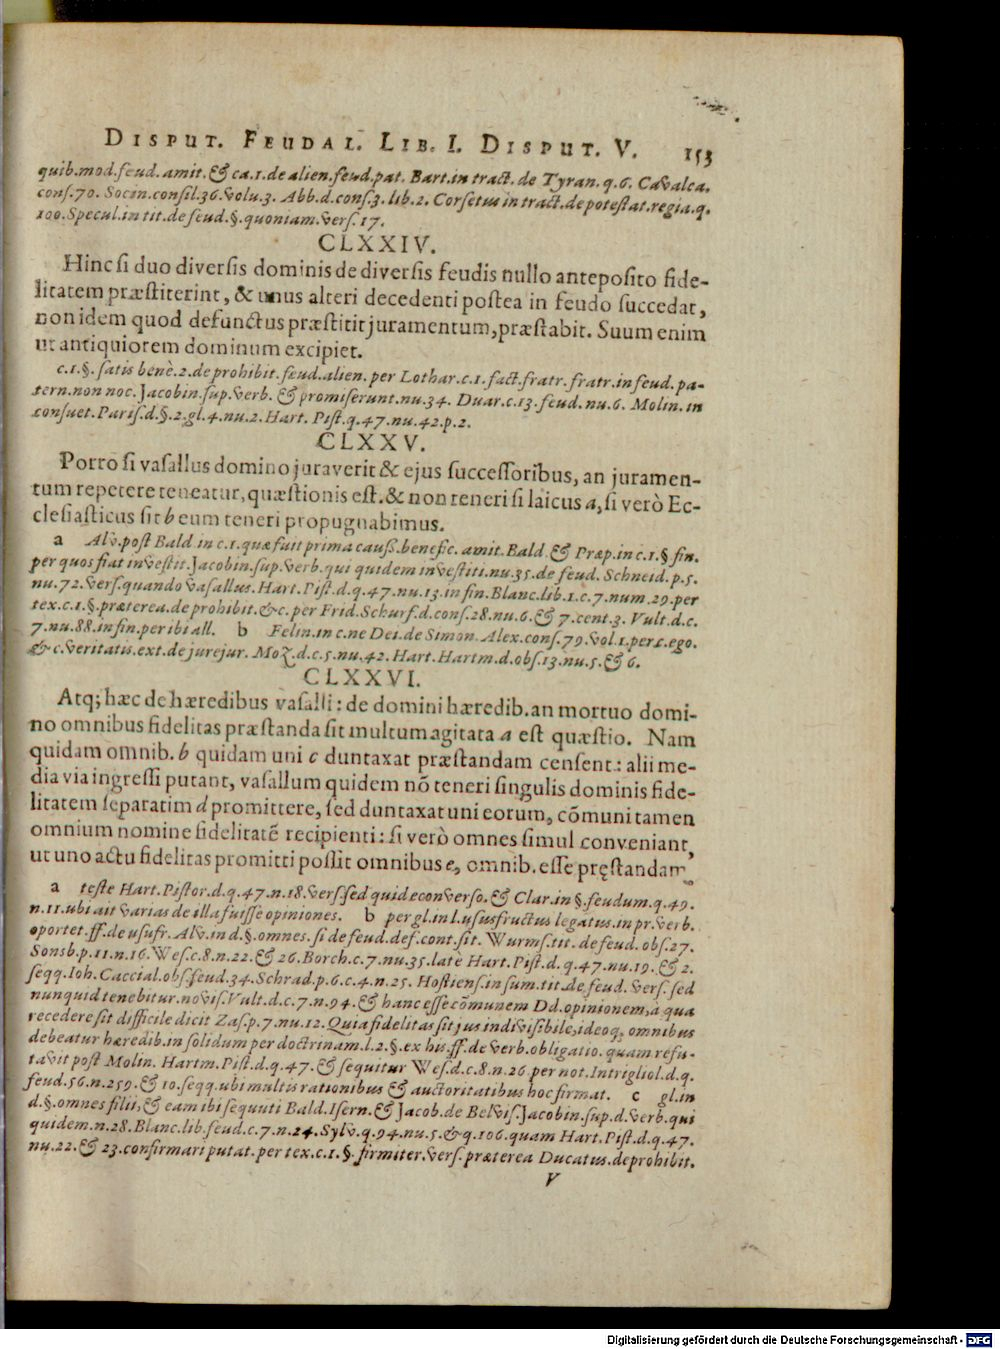 DISPUT. FEUDAL. LIB. I. DISPUT. V. 153
quib.mod.feud. amit. & ca.1.de alien.feud.pat. Bart.in tract. de Tyran. q.6. Cavalca.
conſ.70. Socin.conſil.36.volu.3. Abb.d.conſ.3.lib.2. Corſetus in tract.de poteſtat.regia.q.
100.Specul.in tit.de feud.§.quoniam.verſ.17.
CLXXIV.
Hinc ſi duo diverſis dominis de diverſis feudis nullo antepoſito fide-
litatem præſtiterint, & unus alteri decedenti poſtea in feudo ſuccedat,
non idem quod defunctus præſtitit juramentum, præſtabit. Suum enim
ut antiquiorem dominum excipiet.
c.1.§. ſatis benè.2.de prohibit.feud.alien. per Lothar.c.1.fact.fratr. fratr.in feud. pa-
tern.non noc. Jacobin.ſup.verb. & promiſerunt.nu.34. Duar.c.13.feud. nu.6. Molin. in
conſuet.Pariſ.d.§.2.gl.4.nu.2. Hart. Piſt.q.47.nu.42.p.2.
CLXXV.
Porro ſi vaſallus domino juraverit & ejus ſucceſſoribus, an juramen-
tum repetere teneatur, quæſtionis eſt. & non teneri ſi laicus a, ſi verò Ec-
cleſiaſticus ſit b eum teneri propugnabimus.
a Alv.poſt Bald.in c.1.quæ fuit prima cauſſ.benefic. amit. Bald. & Præp.in c.1.§ fin.
per quos fiat inveſtit.Jacobin.ſup.verb.qui quidem inveſtiti.nu.35.de feud. Schneid.p.5.
nu.72.verſ.quando vaſallus. Hart. Piſt.d.q.47.nu.13.in fin.Blanc.lib.1.c.7.num.29.per
tex.c.1.§.præterea.de prohibit.&c.per Frid.Schurf.d.conſ.28.nu.6. & 7.cent.3. Vult.d.c.
7.nu.88.in fin.per ibi all. b Felin.in c.ne Dei.de Simon. Alex.conſ.79.vol.1.per c.ego.
& c.veritatis.ext.de jurejur. Moz.d.c.5.nu.42.Hart.Hartm.d.obſ.13.nu.5. & 6.
CLXXVI.
Atq; hæc de hæredibus vaſalli: de domini hæredib. an mortuo domi-
no omnibus fidelitas præſtanda ſit multum agitata a eſt quæſtio. Nam
quidam omnib. b quidam uni c duntaxat præſtandam cenſent: alii me-
dia via ingreſſi putant, vaſallum quidem nō teneri ſingulis dominis fide-
litatem ſeparatim d promittere, ſed duntaxat uni eorum, cōmuni tamen
omnium nomine fidelitatē recipienti: ſi verò omnes ſimul conveniant,
ut uno actu fidelitas promitti poſſit omnibus e, omnib. eſſe pręſtandam.
a teſte Hart.Piſtor.d.q.47.n.18.verſ.ſed quid econverſo. & Clar.in §.feudum.q.49.
n.11.ubi ait varias de illa fuiſſe opiniones. b per gl.in l.uſusfructus legatus.in pr.verb.
oportet.ff.de uſufr. Alv.in d.§.omnes.ſi de feud.def.cont.ſit. Wurmſ.tit. de feud. obſ.27.
Sonsb.p.11.n.16. Weſ.c.8.n.22. & 26. Borch.c.7.nu.35.late Hart. Piſt.d. q.47.nu.19. & 2.
ſeqq.Ioh. Caccial.obſ.feud.34.Schrad.p.6.c.4.n.25. Hoſtienſ.in ſum.tit.de feud. verſ. ſed
nunquid tenebitur.noviſ.Vult.d.c.7.n.94. & hanc eſſe cōmunem Dd.opinionem, à qua
recedere ſit difficile dicit Zaſ.p.7.nu.12. Quia fidelitas ſit jus indiviſibile, ideoq; omnibus
debeatur hæredib.in ſolidum per doctrinam.l.2.§.ex his.ff.de verb.obligatio.quam refu-
tavit poſt Molin. Hartm.Piſt.d.q.47. & ſequitur Weſ.d.c.8.n.26 per not.Intrigliol.d.q.
feud.56.n.259. & 10.ſeqq.ubi multis rationibus & auctoritatibus hoc firmat. c gl.in
d.§.omnes filii, & eam ibi ſequuti Bald.Iſern. & Jacob.de Belviſ.Jacobin.ſup.d.verb.qui
quidem.n.28.Blanc.lib.feud.c.7.n.24.Sylv.q.94.nu.5.& q.106.quam Hart. Piſt.d.q.47.
nu.22. & 23.confirmari putat.per tex.c.1.§.firmiter.verſ.præterea Ducatus.de prohibit.
V
Digitalisierung gefördert durch die Deutsche Forschungsgemeinschaft - DFG